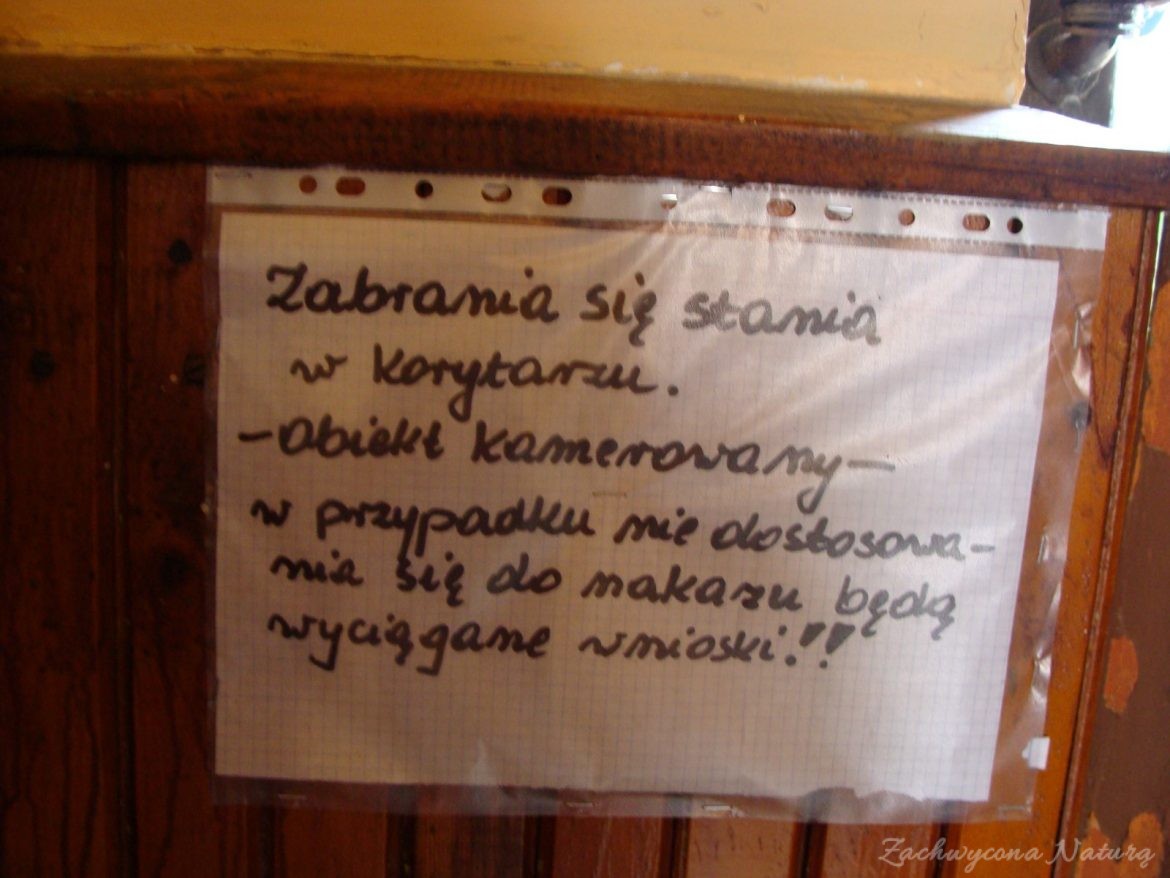 Zabrania się stania
w korytarzu.
-Obiekt kamerowany-
w przypadku nie dostosowa-
nia się do nakazu będą
wyciągane wnioski!!
Zachwycona Naturą